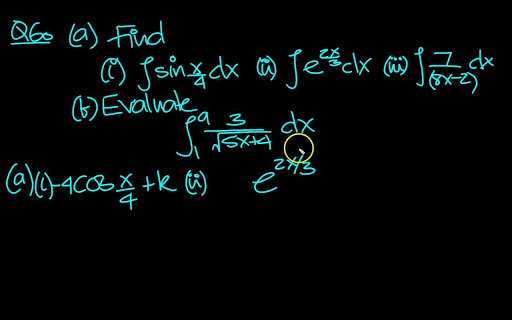 Q60 (a) Find
(i) ∫ sin x/4 dx (ii) ∫ e^(2x/3) dx (iii) ∫ 7/(8x-2) dx
(b) Evaluate
∫₁⁹ 3/√(5x+4) dx
(a)(i) -4cos x/4 + k (ii) e^(2x/3)